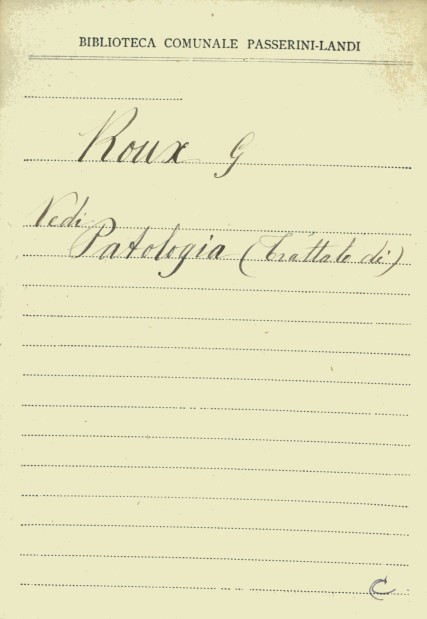 BIBLIOTECA COMUNALE PASSERINI-LANDI
Roux G
Vedi
Patologia (Trattato di)
C